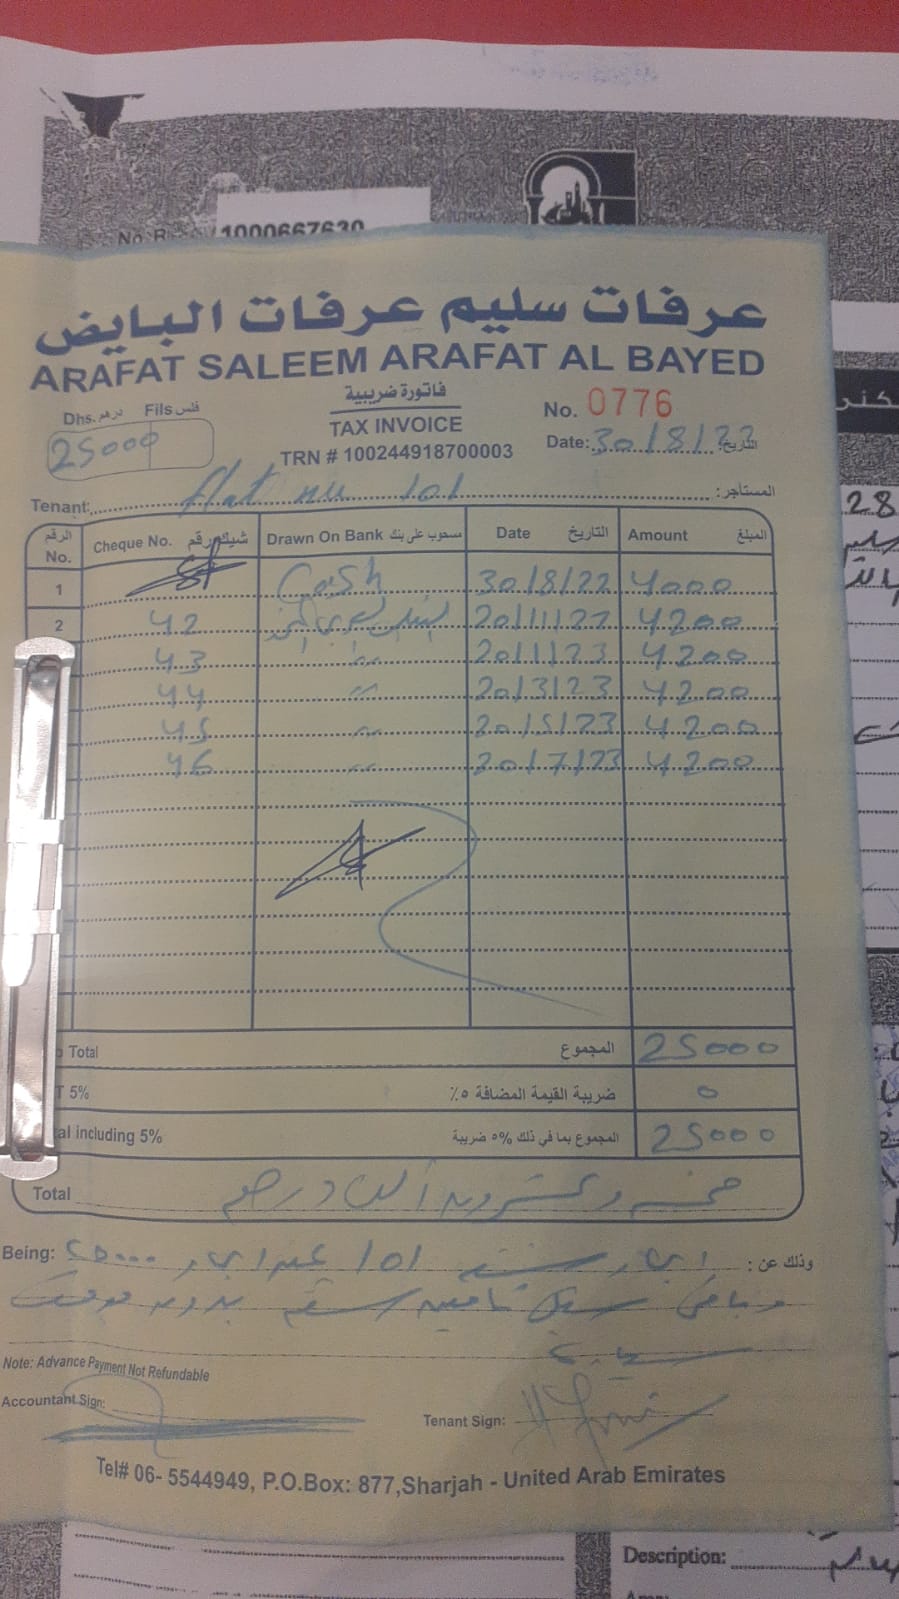 No.R 1000667630
عرفات سليم عرفات البايض
ARAFAT SALEEM ARAFAT AL BAYED
فاتورة ضريبية
TAX INVOICE
TRN # 100244918700003
Dhs. درهم Fils فلس
25000
No. 0776
Date: 30/8/22 التاريخ:
Tenant: flat nu 101 المستأجر:
No. الرقم Cheque No. شيك رقم Drawn On Bank مسحوب على بنك Date التاريخ Amount المبلغ
1 Cash 30/8/22 4000
2 42 20/11/22 4200
43 " 20/1/23 4200
44 " 20/3/23 4200
45 " 20/5/23 4200
46 " 20/7/23 4200
Total المجموع 25000
5% ضريبة القيمة المضافة ٥٪ 0
including 5% المجموع بما في ذلك 5% ضريبة 25000
Total خمسة وعشرون ألف درهم
Being: وذلك عن: ايجار شقة 101 ٢٥٠٠٠
Note: Advance Payment Not Refundable
Accountant Sign:
Tenant Sign:
Tel# 06- 5544949, P.O.Box: 877,Sharjah - United Arab Emirates
28
Description: